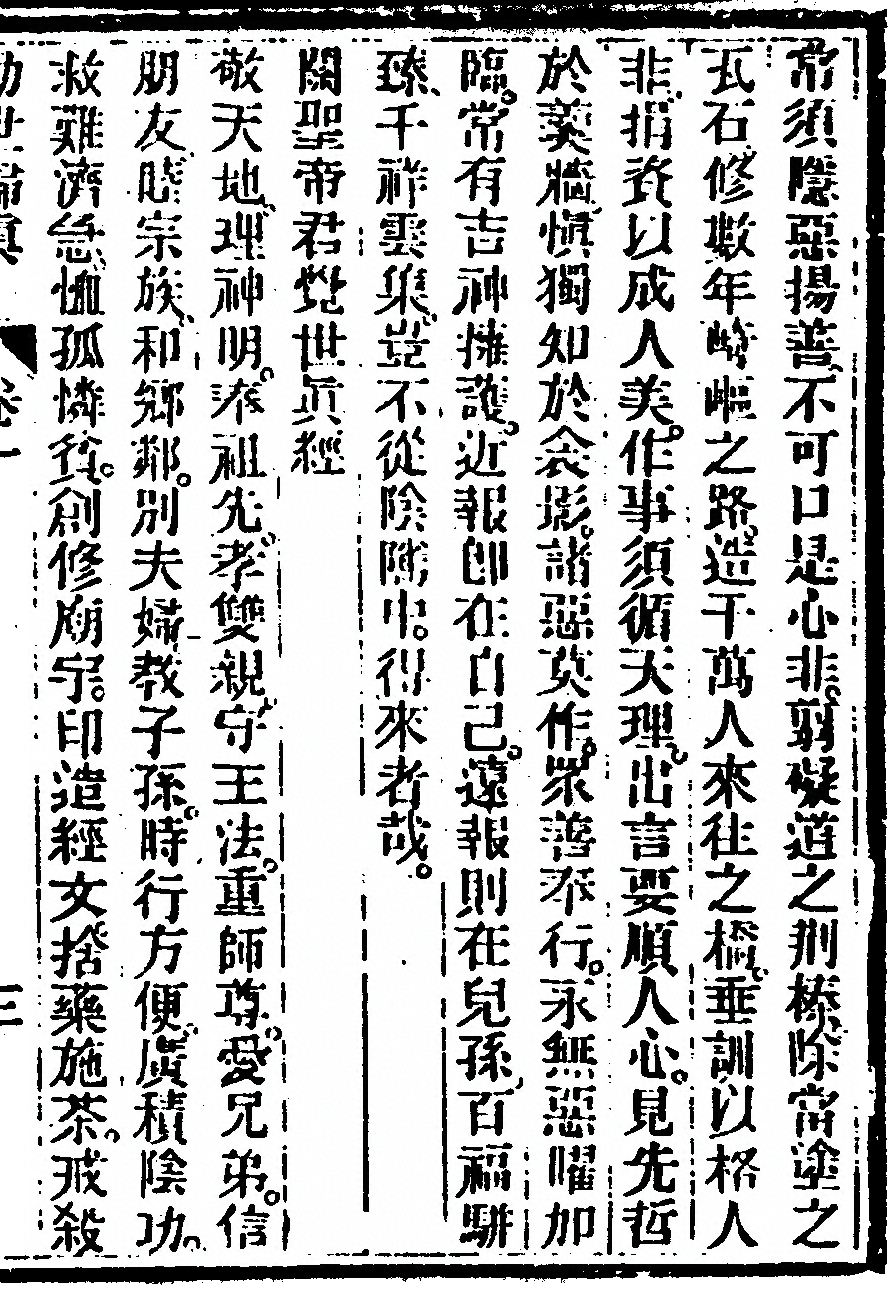 常須隱惡揚善、不可口是心非。翦礙道之荆榛、除當塗之
瓦石、修數年崎嶇之路。造千萬人來往之橋。垂訓以格人
非、捐資以成人美。作事須循天理。出言要順人心。見先哲
於羮牆、慎獨知於衾影。諸惡莫作。衆善奉行。永無惡曜加
臨。常有吉神擁護。近報卽在自己。遠報則在兒孫、百福駢
臻、千祥雲集、豈不從陰隲中。得來者哉。
關聖帝君覺世眞經
敬天地、理神明。奉祖先、孝雙親、守王法。重師尊、愛兄弟。信
朋友、睦宗族、和鄉鄰。別夫婦、教子孫。時行方便、廣積陰功。
救難濟急、恤孤憐貧。創修廟宇。印造經文、捨藥施茶。戒殺
勸世歸真 卷一 三